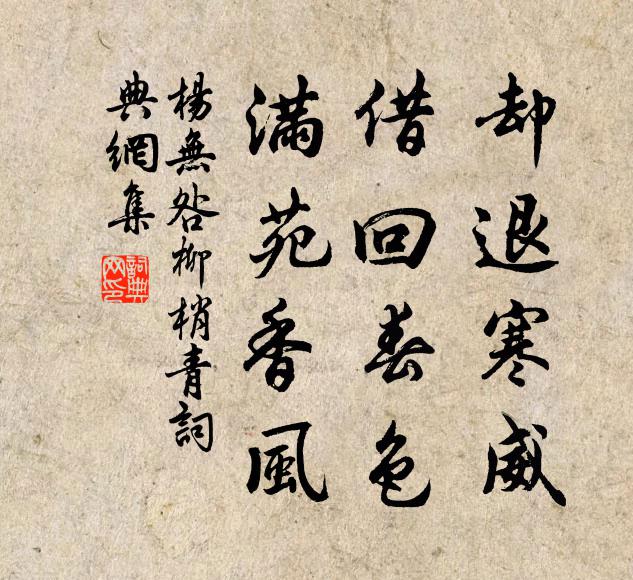 却退寒威
借回春色
滿苑香風
楊無咎柳梢青詞
典網集
詞典
网印